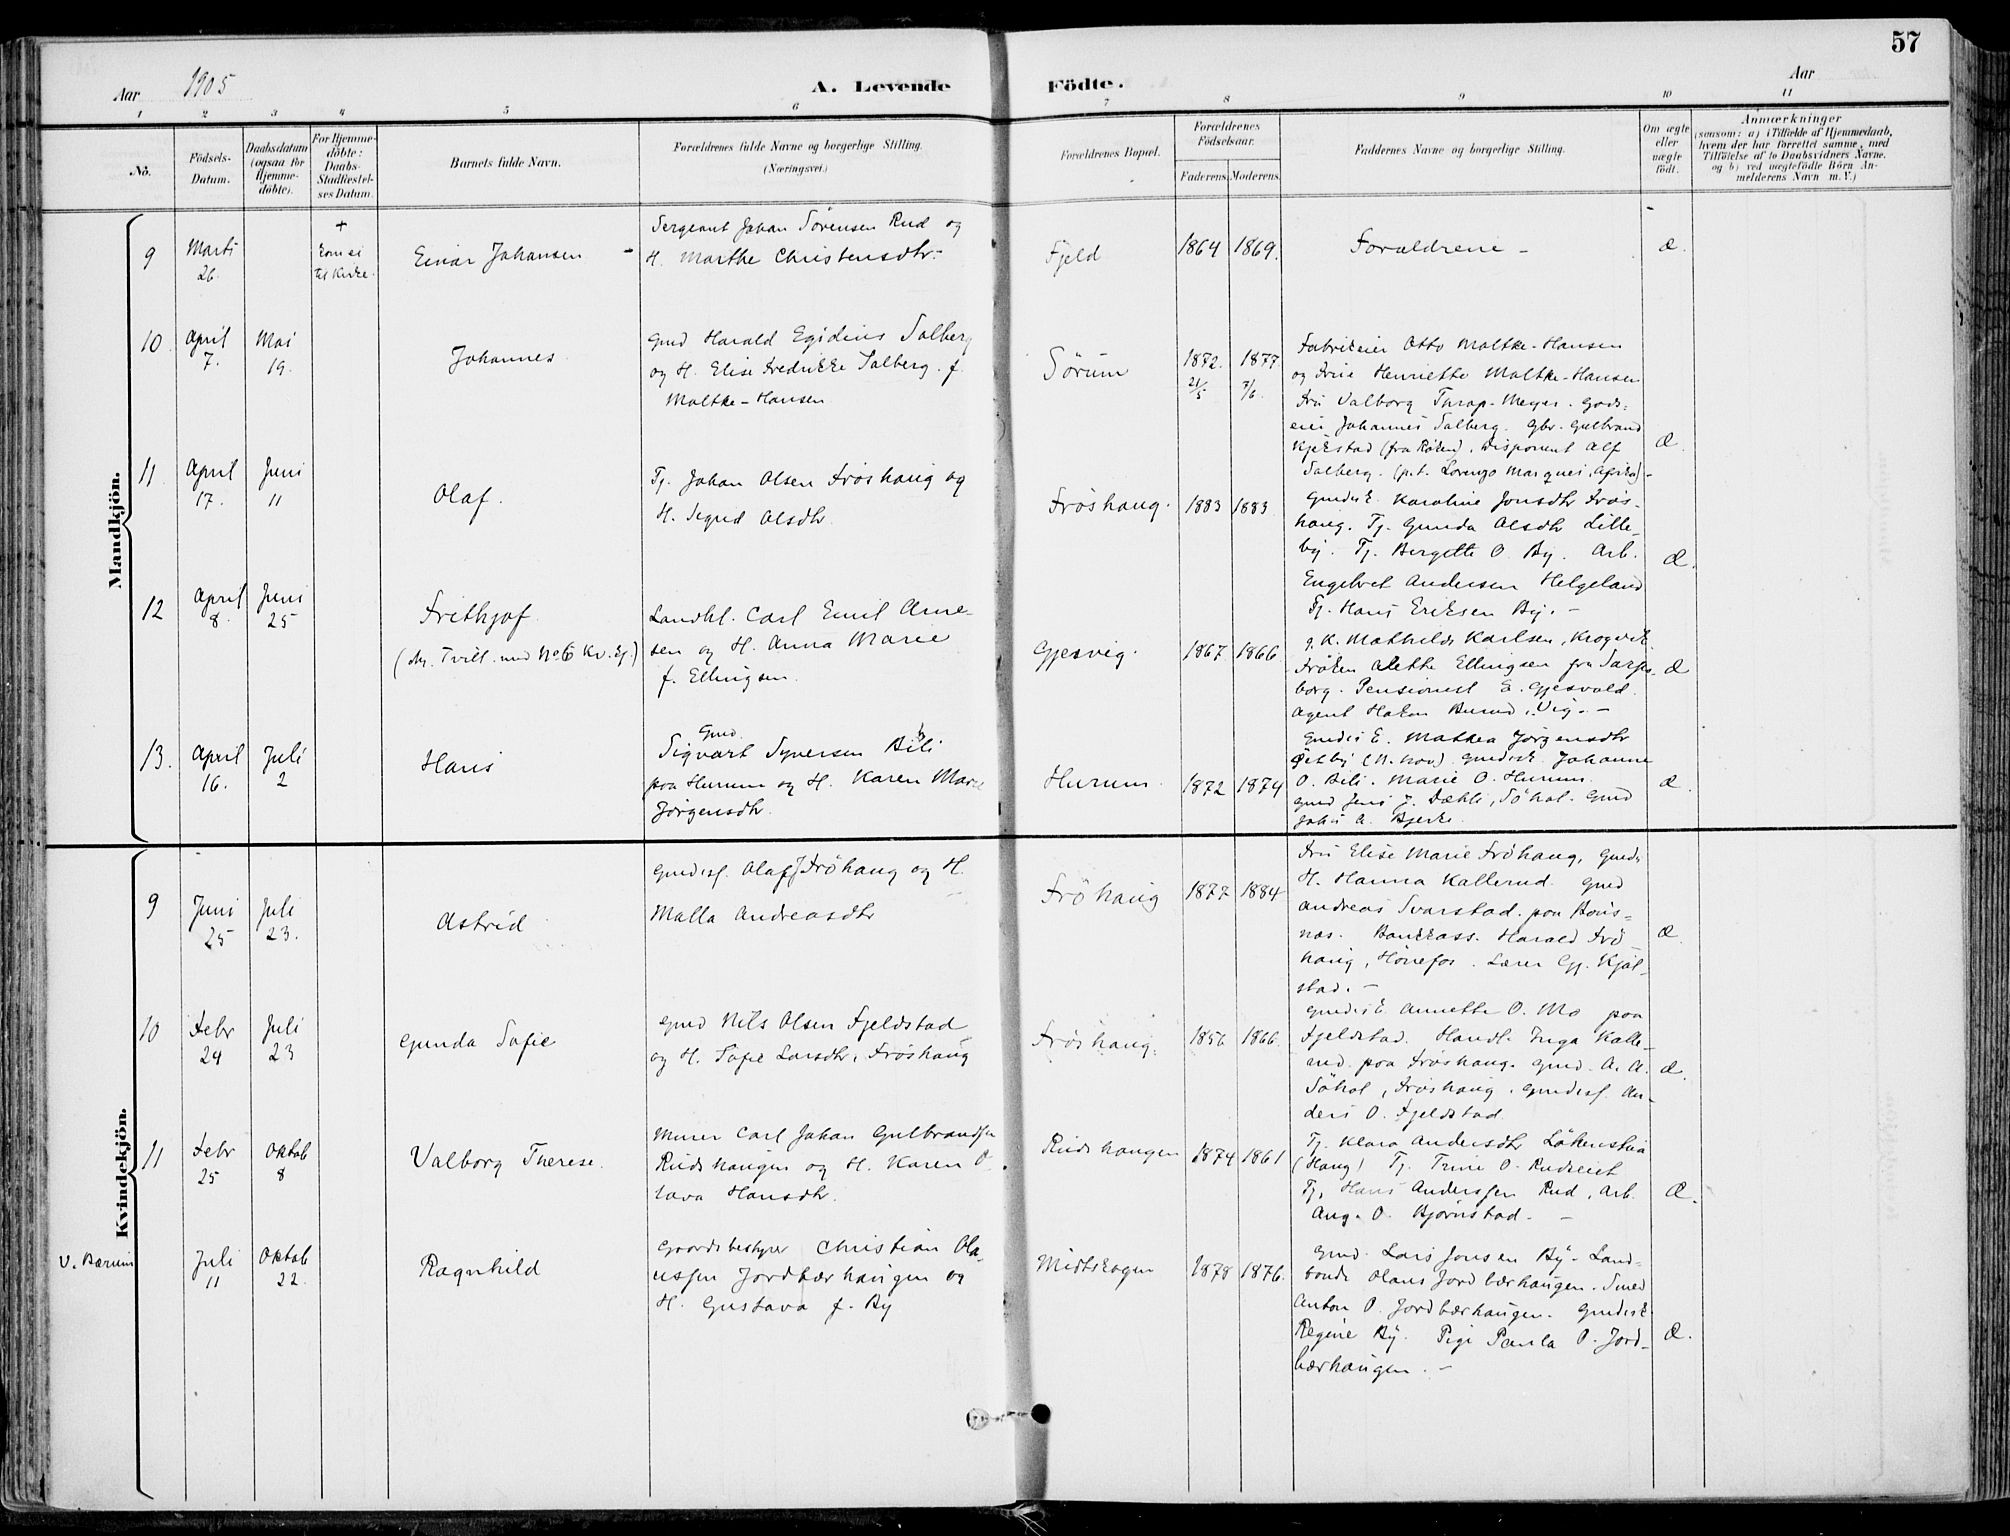 57
Aar 1905
A. Levende Födte.
Aar
1 2 3 4 5 6 7 8 9 10 11
No.
Födsels-Datum.
Daabsdatum (ogsaa for Hjemmedöbte).
For Hjemmedöbte: Daabs-Stadfæstelses Datum.
Barnets fulde Navn.
Forældrenes fulde Navne og borgerlige Stilling. (Næringsvei.)
Forældrenes Bopæl.
Forældrenes Födselsaar.
Faderens. Moderens.
Faddernes Navne og borgerlige Stilling.
Om ægte eller uægte födt.
Anmærkninger
(saasom: a) i Tilfælde af Hjemmedaab, hvem der har forrettet samme, med Tilföielse af to Daabsvidners Navne, og b) ved uægtefödte Börn Anmelderens Navn m. V.)
Mandkjön.
9
Marts 26
+ Kom ei til Kirke.
Einar Johansen -
Sergeant Johan Sörensen Rud og
H. Marthe Christensdtr.-
Fjeld
1864 1869.
Forældrene -
Æ.
10
April 7.
Mai 19.
Johannes
Gmd Harald Egidius Solberg
og H. Elise Fredrikke Solberg. f.
Moltke-Hansen
Sørum
1872. 21/5
1877 7/6.
Fabrikeier Otto Moltke-Hansen
og Frue Henriette Moltke-Hansen
Fru Valborg Thrap-Meyer. Gods=
eier Johannes Solberg. Gbr. Gulbrand
Kjekstad (fra Röken). Disponent Alf
Solberg. (p.t. Lorenzo Marques, Afrika)-
Æ
11.
April 17.
Juni 11
Olaf.
Tj. Johan Olsen Fröshaug og
H. Signe Olsdtr.
Fröshaug.
1883 1883
Gmdsk. Karoline Jonsdtr Frös-
haug. Tj. Gunda Olsdtr Lille-
by. Tj. Bergitte O. By. Arb.
Engebret Andersen Helgeland
Tj. Hans Eriksen By. -
Æ.
12
April 8.
Juni 25
Frithjof.
(Ny. Tvill. med No 6 Kv. Kj.)
Landhl. Carl Emil Arne-
sen og H. Anna Marie
f. Ellingsen.
Gjesvig.
1867 1866
g. K. Mathilde Karlsen, Krogerik
Fröken Alette Ellingsen fra Sarps-
borg. Pensionist E. Gjesvold
Agent Hakon Burud, Vig. -
Æ
13.
April 16.
Juli 2
Hans
Gmd.
Sigvart Syversen Bili
paa Hurum og H. Karen Marie
Jörgensdtr.
Hurum.
1872 1874
Gmds E. Mathea Jörgensdtr
O. Bili. Marie O. Hurum.
Gmd Jens J. Dæhli, Söhol. Gmd
Johs A. Bjerke.
Æ.
Kvindekjön.
9
Juni 25
Juli 23.
Astrid
Gmdsf. Olaf J Fröhaug og H.
Malla Andreasdtr
Fröhaug
1877 1884
Fru Elise Marie Fröhaug, Gmds
H. Hanna Kallerud. Gmd
Andreas Svarstad. paa Böns=
nes. Bankkass. Harald Frö-
haug, Hönefos. Lærer Gj. Kjöl-
stad. -
Æ.
10
Febr 24
Juli 23
Gunda Sofie
Gmd Nils Olsen Fjeldstad
og H. Sofie Larsdtr, Fröshaug
Fröshaug.
1856 1866.
Gmdsk Annette O. Mo paa
Fjeldstad. Handl. Inga Kalle-
rud paa Fröshaug. Gmd. A. A.
Söhol, Fröshaug. Gmdsf. An-
ders O. Fjeldstad.
Æ.
11
Febr 25
Oktob 8
Valborg Therese.
Murer Carl Johan Gulbrandsen
Rudshaugen og H. Karen O-
lava Hansdtr.
Rudshaugen
1874 1861
Tj. Klara Andersdtr Lökenstua
(Haug) Tj. Trine O. Rudseiet
Tj. Hans Anderssen Rud, Arb.
Aug. O. Bjørnstad. -
Æ.
V. Bærum
Juli 11
Oktob 22.
Ragnhild
Gaardsbestyrer Christian Ola-
ussen Jordbærhaugen og
H. Gustava f. By
Midtskogen
1878 1876.
Gmd. Lars Jonsen By- Land-
bonde Hans Jordbærhaugen. Smed
Anton O. Jordbærhaugen. Gmdsk
Regine By. Pige Paula O. Jord-
bærhaugen. -
Æ.